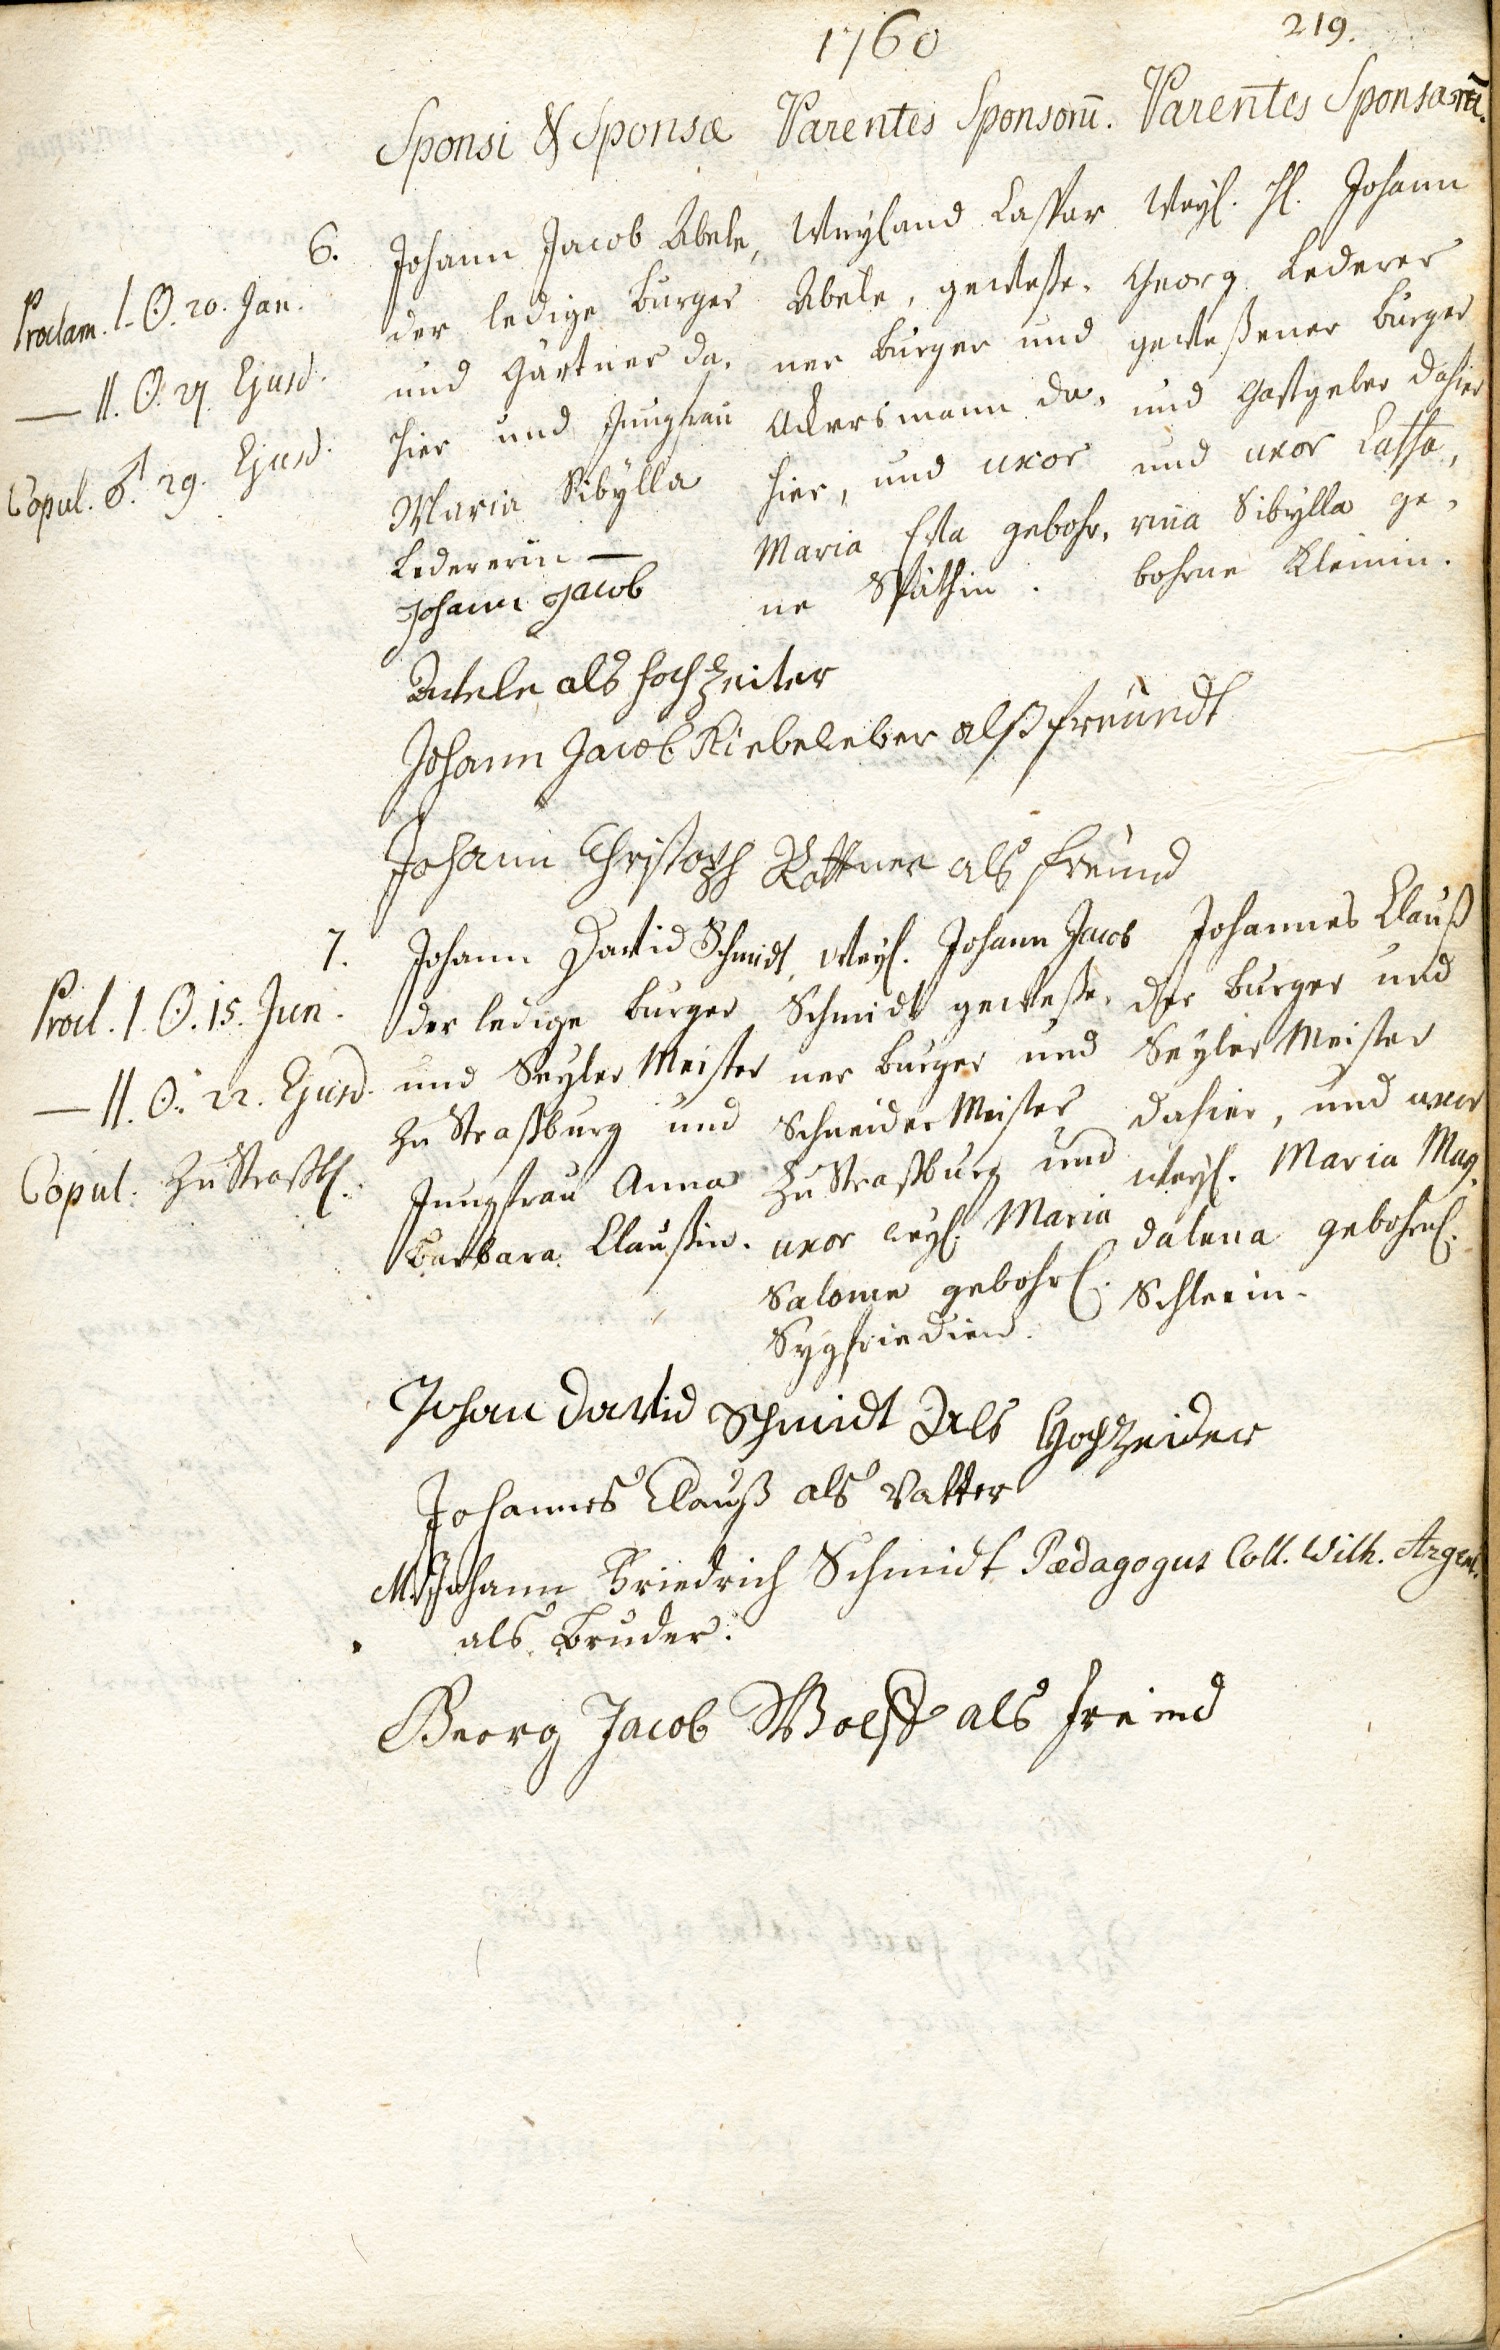 1760
219.
Sponsi & Sponsæ Parentes Sponsorũ. Parentes Sponsarũ.
6.
Proclam. I. ☉. 20. Jan.
— II. ☉. 27. Ejusd.
Copul. ♂. 29. Ejusd.
Johann Jacob Abele,
der ledige burger
und Gärtner da-
hier und Jungfrau
Maria Sibylla
Ledererin —
Weyland Caspar
Abele, geweße-
ner burger und
Ackersmann da-
hier, und uxor
Maria Eva gebohr-
ne Späthin.
Weyl. H. Johann
Georg Lederer
geweßener burger
und Gastgeber dahier
und uxor Catha-
rina Sibylla ge-
bohrne Kleinin.
Johann Jacob
Abele als hochzeiter
Johann Jacob Kiebeleber alß freündt
Johann Christoph Rottner als freund
7.
Procl. I. ☉. 15. Jun.
— II. ☉. 22. Ejusd.
Copul. zu Straßb.
Johann David Schmidt,
der ledige burger
und Seyler Meister
zu Straßburg und
Jungfrau Anna
Barbara Claußin.
Weyl. Johann Jacob
Schmidt geweße-
ner burger und
Schneider Meister
zu Straßburg und
uxor weyl. Maria
Salome gebohrl.
Sygfriedien.
Johannes Clauß
der burger und
Seyler Meister
dahier, und uxor
weyl. Maria Mag-
dalena gebohrl.
Schleein.
Johan David Schmidt Als Hochzeider
Johannes Clauß als Vatter
M. Johann Friedrich Schmidt Pædagogus Coll. Wilh. Argent.
als Bruder.
Georg Jacob Wolff als freind